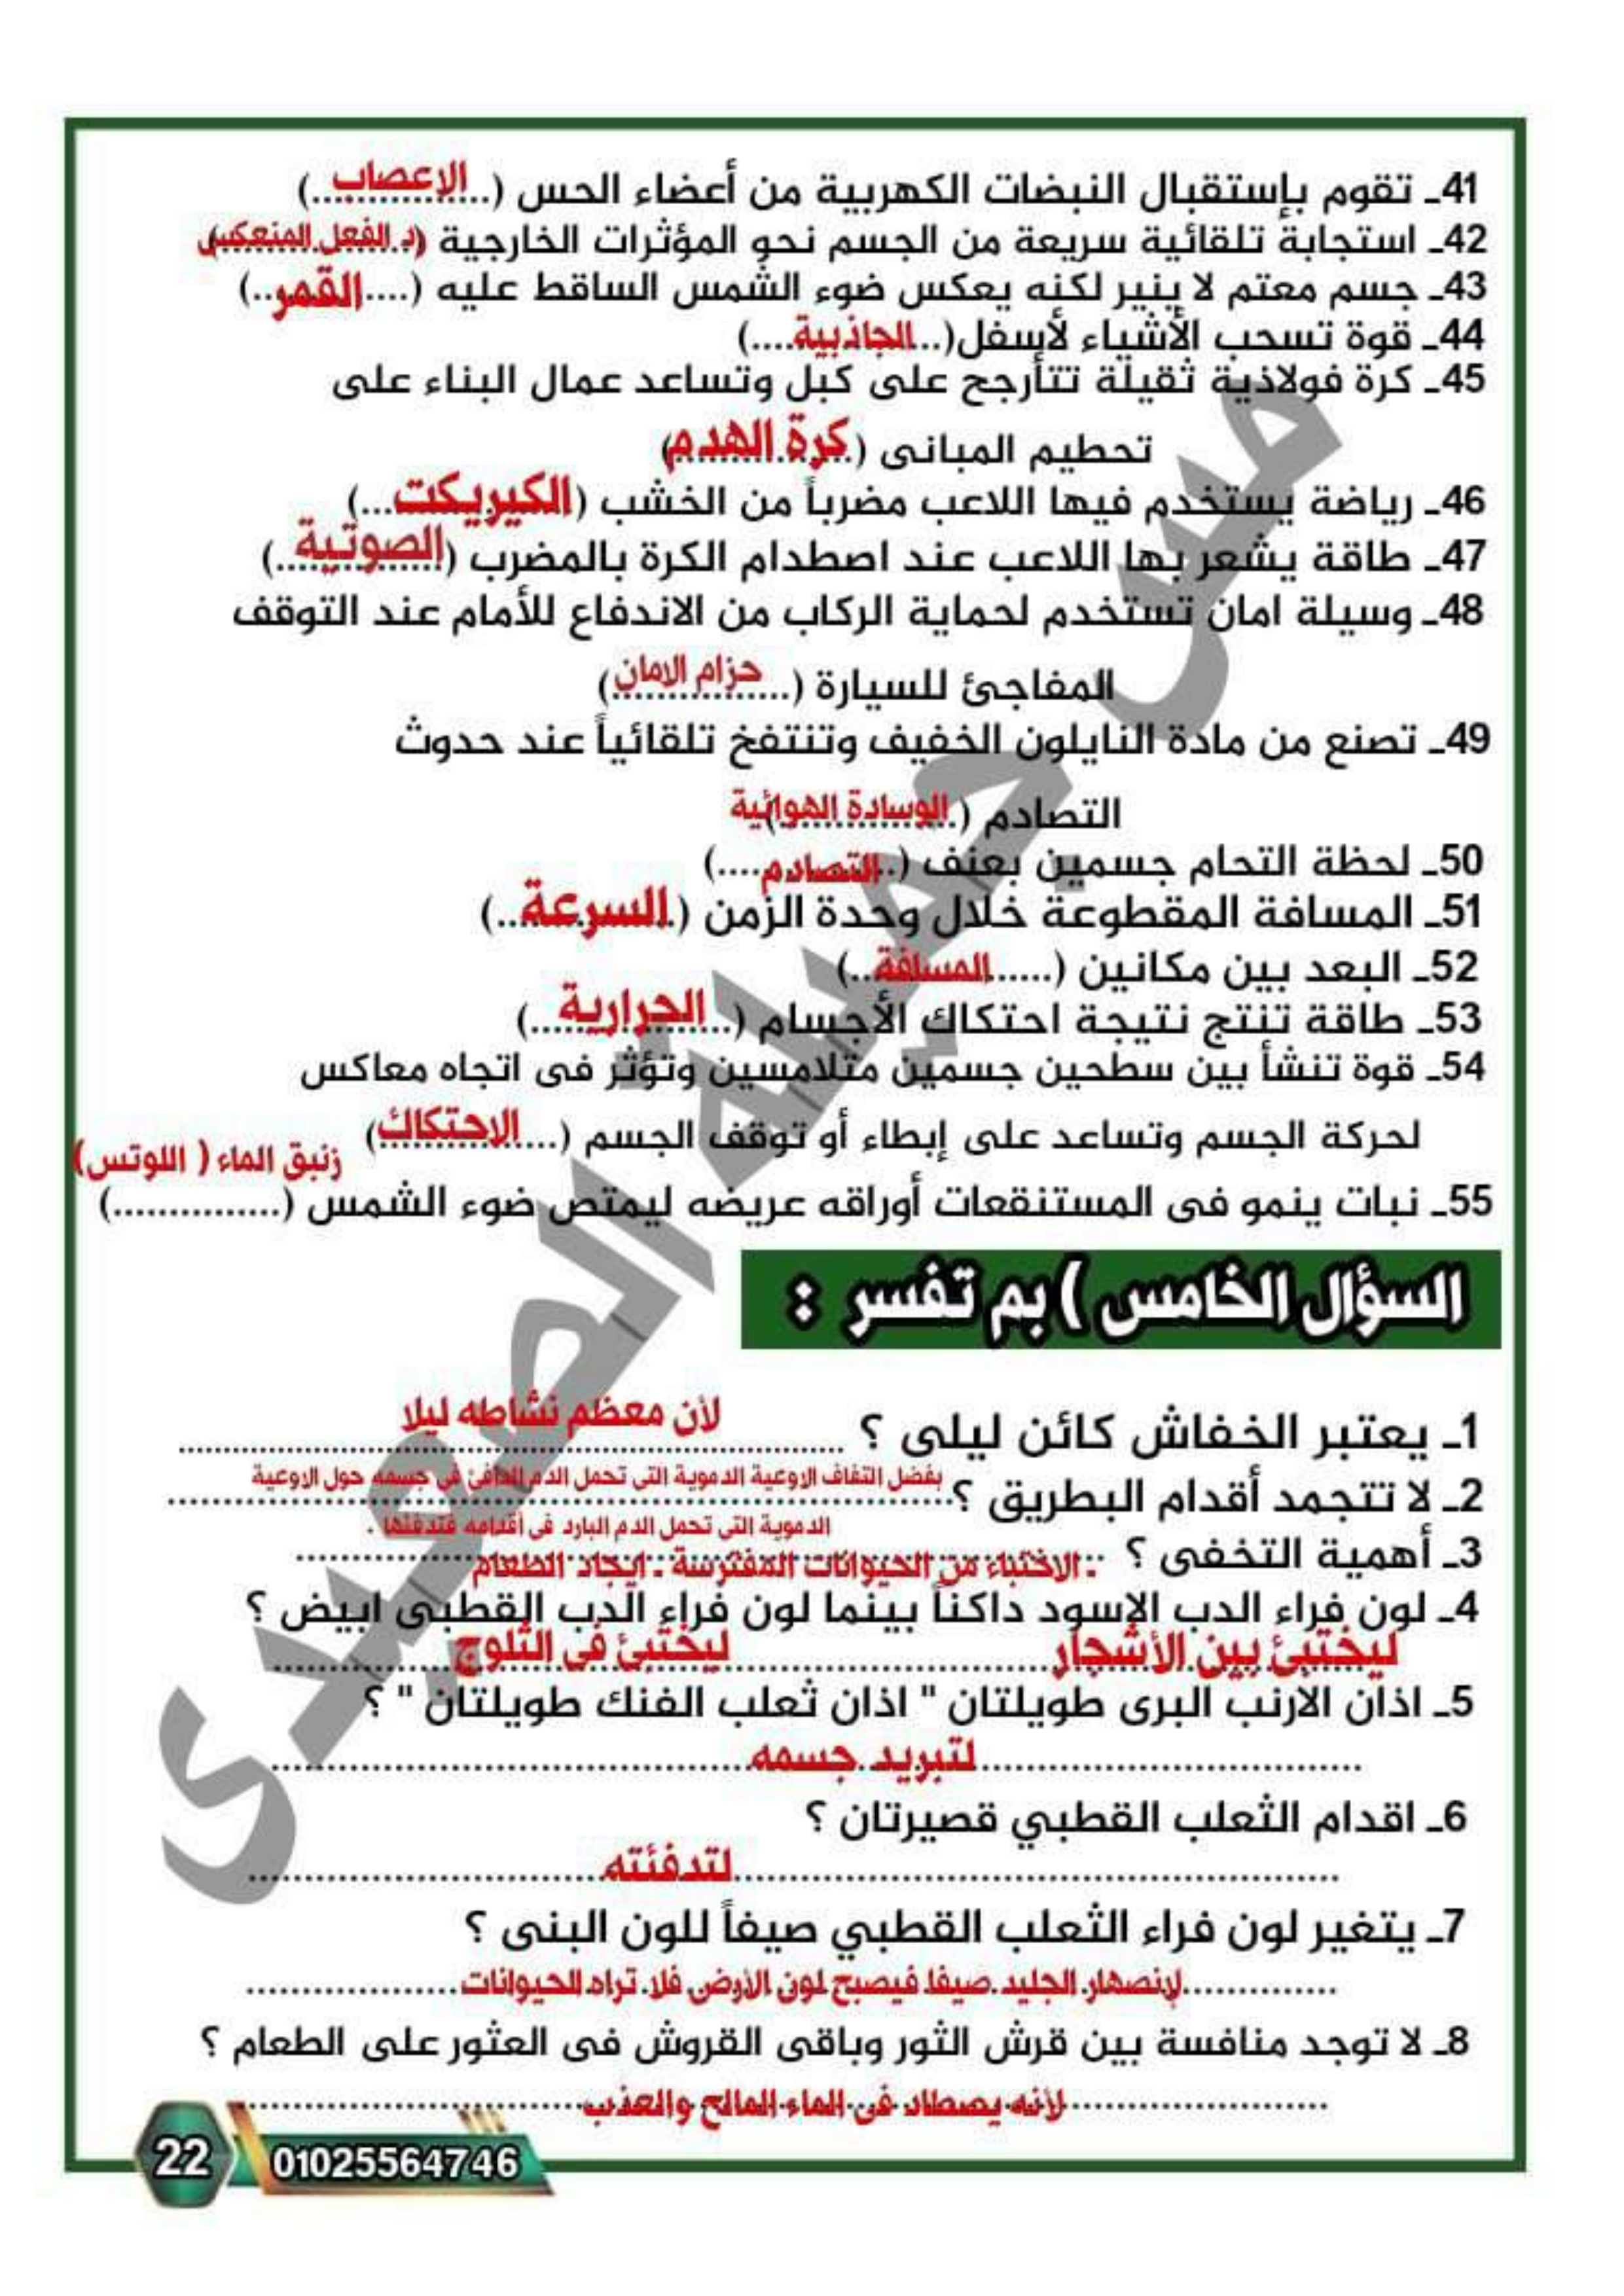 41ـ تقوم بإستقبال النبضات الكهربية من أعضاء الحس (..الاعصاب..)
42ـ استجابة تلقائية سريعة من الجسم نحو المؤثرات الخارجية (رد الفعل المنعكس)
43ـ جسم معتم لا ينير لكنه يعكس ضوء الشمس الساقط عليه (....القمر..)
44ـ قوة تسحب الأشياء لأسفل(...الجاذبية....)
45ـ كرة فولاذية ثقيلة تتأرجح على كبل وتساعد عمال البناء على
تحطيم المبانى (كرة الهدم)
46ـ رياضة يستخدم فيها اللاعب مضرباً من الخشب (الكيريكت...)
47ـ طاقة يشعر بها اللاعب عند اصطدام الكرة بالمضرب (الصوتية..)
48ـ وسيلة امان تستخدم لحماية الركاب من الاندفاع للأمام عند التوقف
المفاجئ للسيارة (..حزام الامان)
49ـ تصنع من مادة النايلون الخفيف وتنتفخ تلقائياً عند حدوث
التصادم (.الوسادة الهوائية)
50ـ لحظة التحام جسمين بعنف (..التصادم....)
51ـ المسافة المقطوعة خلال وحدة الزمن (.السرعة..)
52ـ البعد بين مكانين (......المسافة..)
53ـ طاقة تنتج نتيجة احتكاك الأجسام (..الحرارية..)
54ـ قوة تنشأ بين سطحين جسمين متلامسين وتؤثر فى اتجاه معاكس
لحركة الجسم وتساعد على إبطاء أو توقف الجسم (...الاحتكاك)
زنبق الماء ( اللوتس)
55ـ نبات ينمو فى المستنقعات أوراقه عريضه ليمتص ضوء الشمس (...............)
السؤال الخامس ) بم تفسر :
1ـ يعتبر الخفاش كائن ليلى ؟ لأن معظم نشاطه ليلا
2ـ لا تتجمد أقدام البطريق ؟ بفضل التفاف الاوعية الدموية التى تحمل الدم الدافئ فى جسمه حول الاوعية
الدموية التى تحمل الدم البارد فى أقدامه فتدفئها .
3ـ أهمية التخفى ؟ ـ الاختباء من الحيوانات المفترسة ـ ايجاد الطعام
4ـ لون فراء الدب الاسود داكناً بينما لون فراء الدب القطبى ابيض ؟
ليختبئ بين الأشجار ليختبئ فى الثلوج
5ـ اذان الارنب البرى طويلتان " اذان ثعلب الفنك طويلتان " ؟
لتبريد جسمه
6ـ اقدام الثعلب القطبي قصيرتان ؟
لتدفئته
7ـ يتغير لون فراء الثعلب القطبي صيفاً للون البنى ؟
لإنصهار الجليد صيفا فيصبح لون الأرض فلا تراه الحيوانات
8ـ لا توجد منافسة بين قرش الثور وباقى القروش فى العثور على الطعام ؟
لأنه يصطاد فى الماء المالح والعذب
22
01025564746
مس جميلة الصعيدى